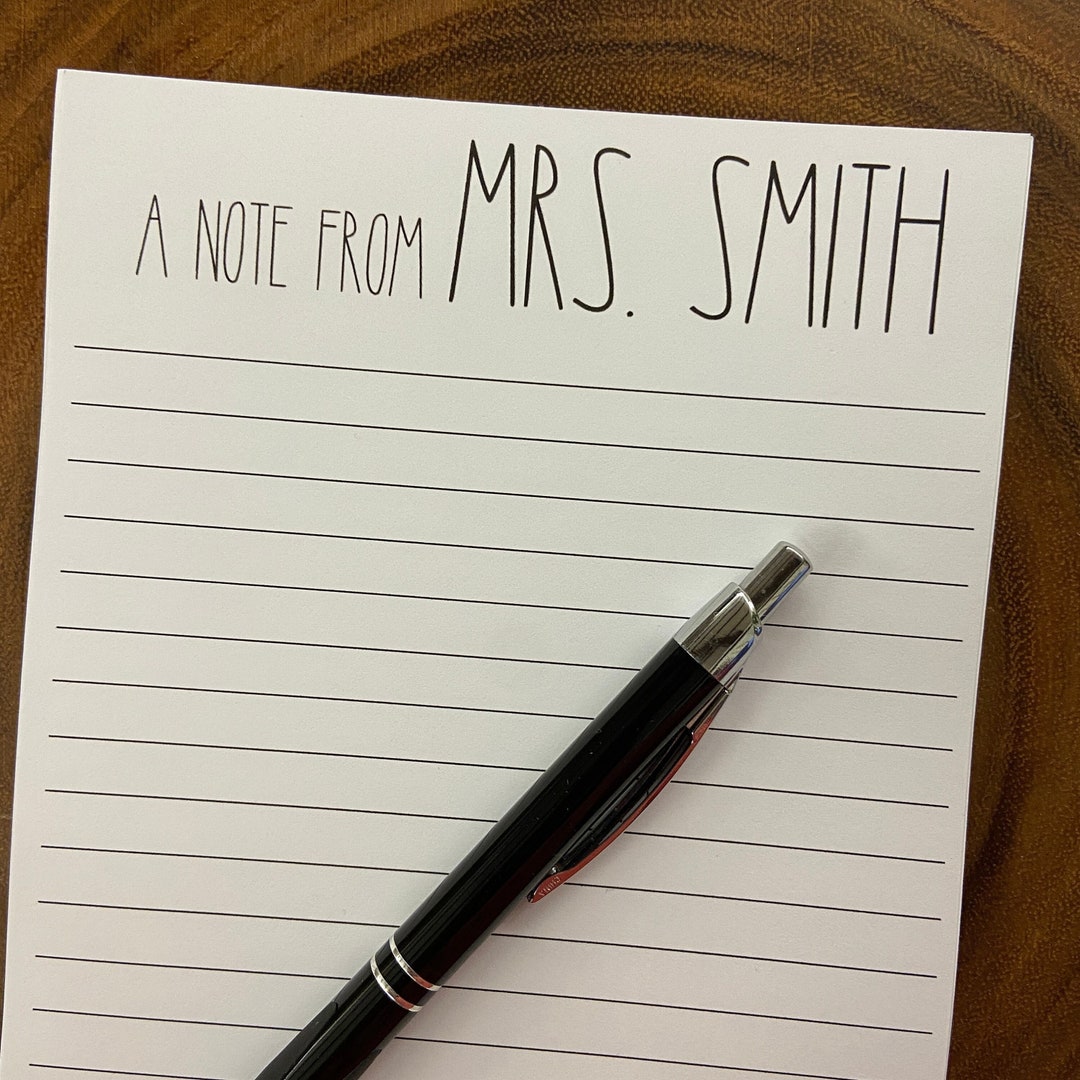 A NOTE FROM MRS. SMITH
CHINA